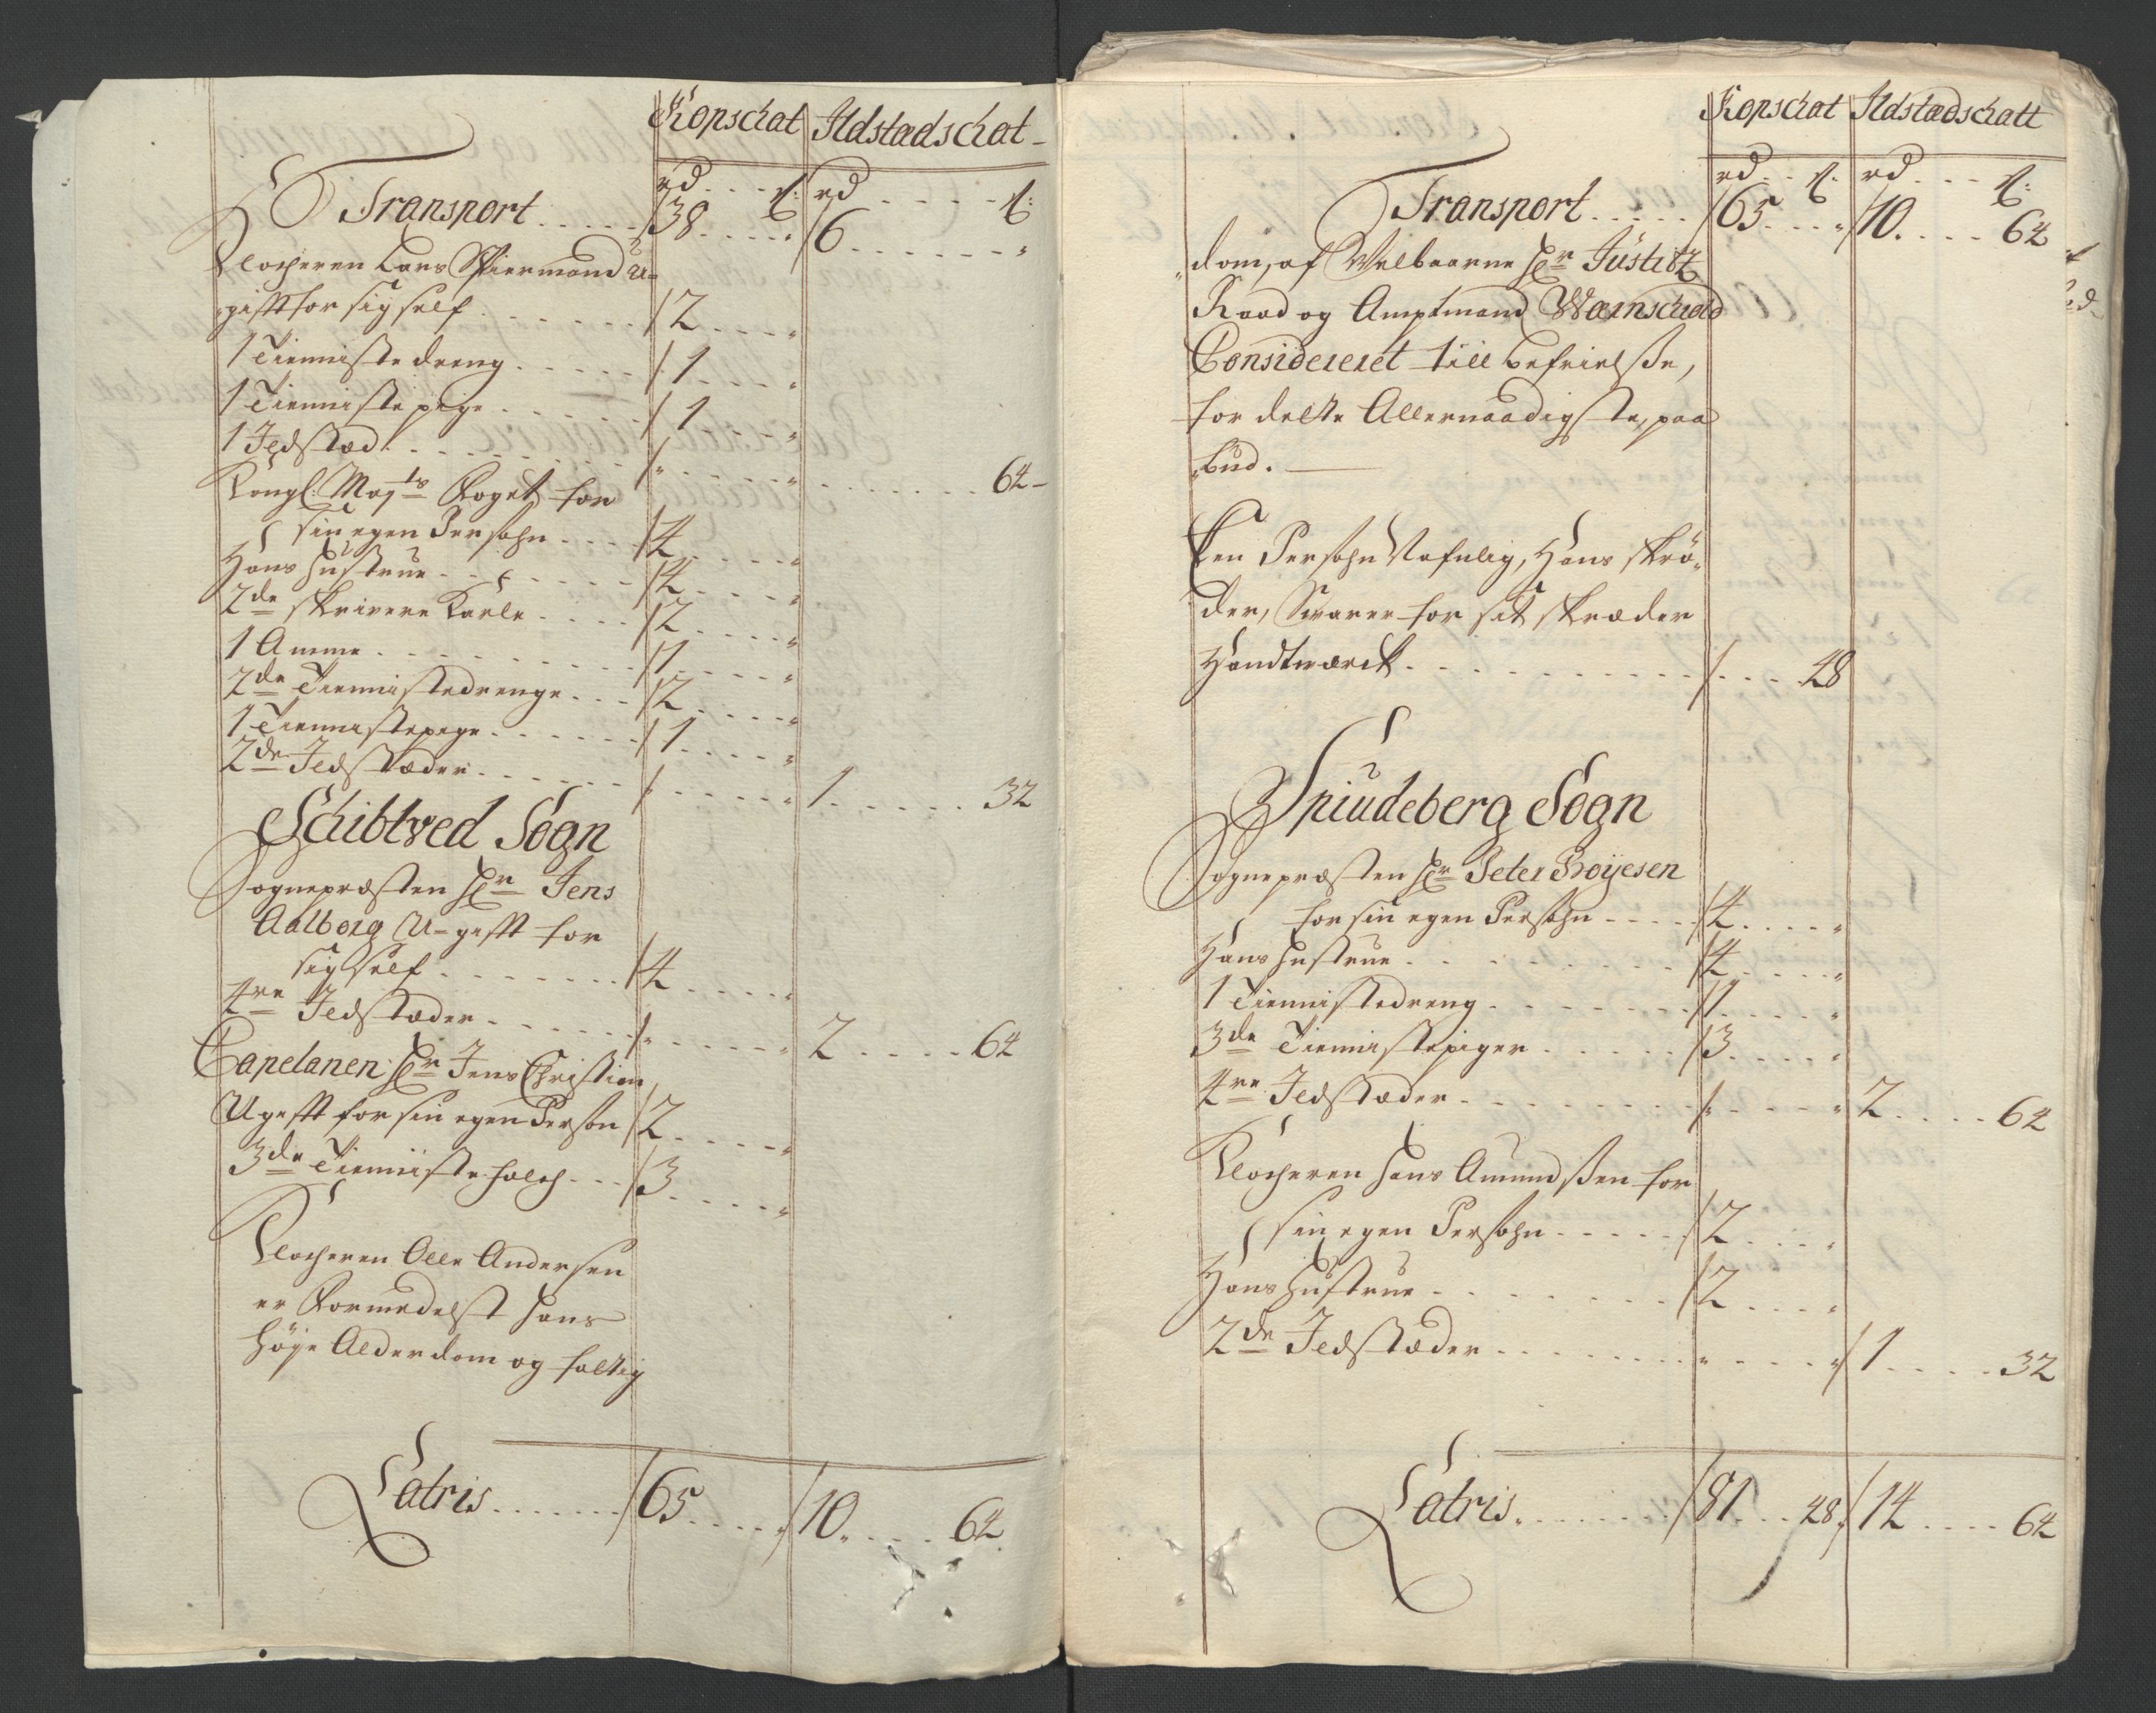 Kopschat Ildstædschat
rd ß: rd ß:
Transport 38 " 6 "
Klocheren Lars Spiermand u-
gifft for sig self 2 "
1 Tienniste dreng 1 "
1 Tienniste pige 1 "
1 Ildstæd " " 64
Kongl: Maj:ts Foget for
sin egen Persohn 4 "
Hans Hustrue 4 "
2de Skriver Karle 2 "
1 Amme 1 "
2de Tiennistedrenge 2 "
1 Tiennistepige 1 "
2de Ildstæder " 1 32
Schibtved Sogn
Sognepræsten Hr. Jens
Aalborg U-gifft for
sig self 4 "
4re Ildstæder " " 2 64
Capelanen Hr. Jens Christian,
Ugifft for sin egen Person 2 "
3de Tienniste folch 3 "
Klocheren Olle Andersen
er Formedelst hans
höye Alderdom og fattig
Latris 65 " 10 64
Kopschat Ildstædschatt
rd ß: rd ß:
Transport 65 " 10 64
dom, af Velbaarne Hr. Justitz
Raad og Amptmand Wærnschiold
Considereret till befrielsse,
for dette Allernaadigste, paa
bud.
Een Persohn Nafnlig, Hans Skrö-
der, Svarer for sit Skræder
Handtværck 48
Spiudeberg Sogn
Sognepræsten Hr. Peter Bröyesen
for sin egen Persohn 4 "
Hans Hustrue 4 "
1 Tiennistedreng 1 "
3de Tiennistepiger 3 "
4re Ildstæder " " 2 64
Klocheren Hans Amundssen for
sin egen Persohn 2 "
Hans Hustrue 2 "
2de Ildstæder " " 1 32
Latris 81 48 14 64